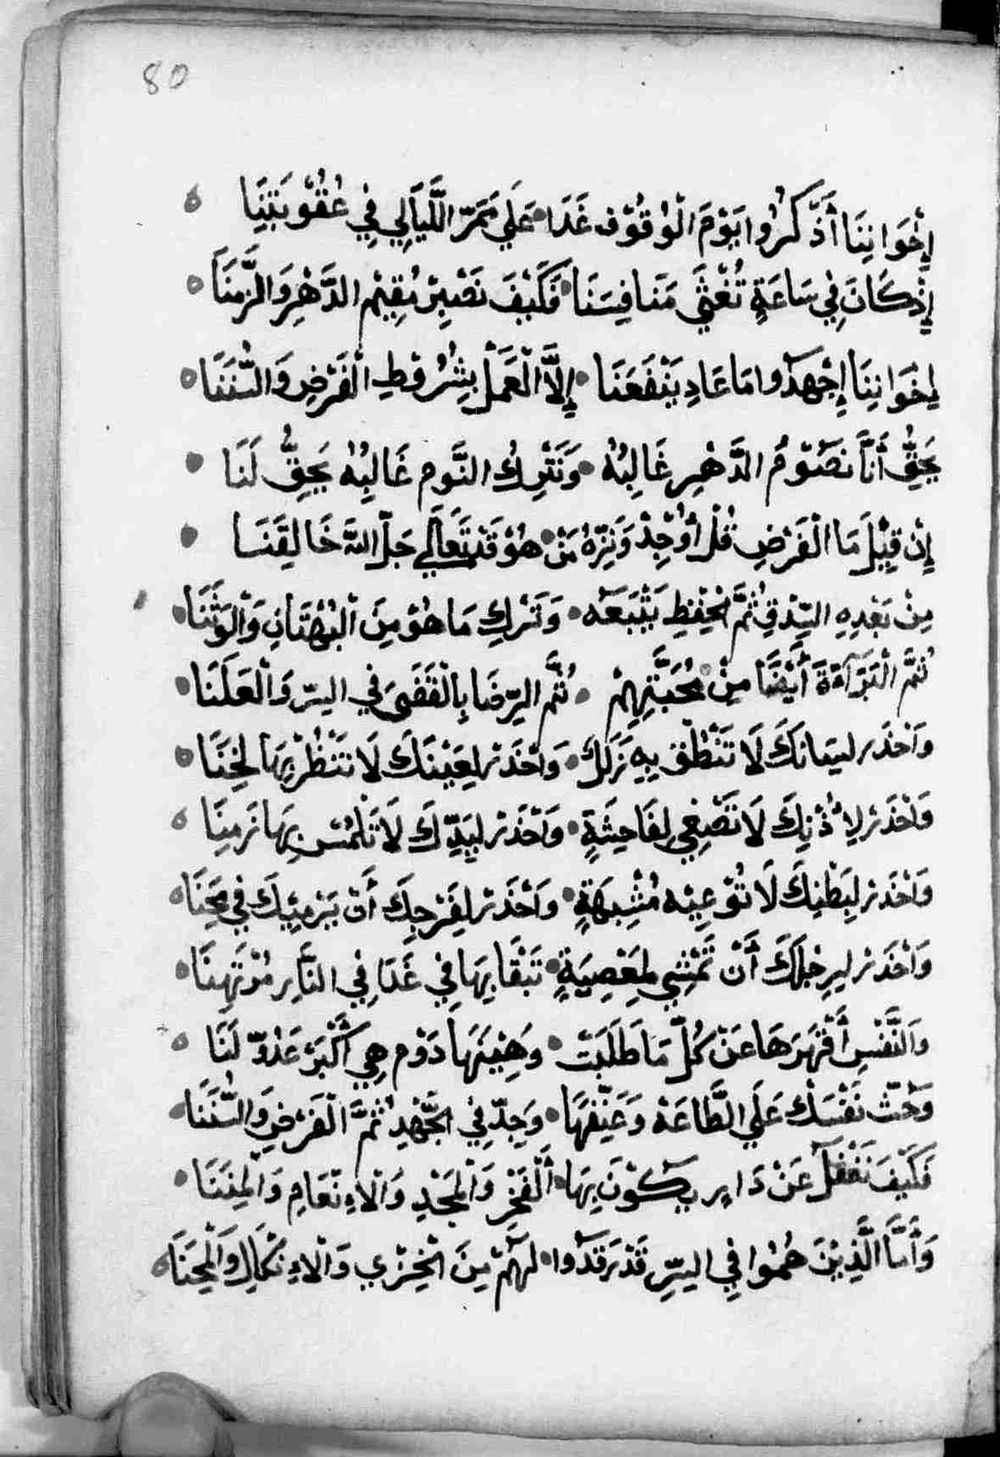 80
إِخْوَانِنَا أَذَّكَّرُوا يَوْمَ الْوُقُوْف غَدَا • عَلَي مَمَرّ اللَّيَالِي فِي عُقُوْبَتِنَا
إِذْ كَانَ فِي سَاعَةٍ تُغْثَي مَنَافِسَنَا • فَكَيْفَ نَصْبِرْ نُقِيْم الدَّهْرِ وَالزَّمَنَا
إِخْوَانِنَا إِجْهَدُوا مَا عَادِ يَنْفَعَنَا • إِلَّا الْعَمَلْ بِشُرُوْطِ الْفَرْضِ وَالسُّنَنَا
بَحِقّ أَنَّا نَصُوْمُ الدَّهْرِ غَالِبُهُ • وَنَتْرِكُ النَّوْم غَالِبُهُ بَحِقُّ لَنَا
إِنْ قِيْلَ مَا الْفَرْضِ قُلْ أَوْجِدْ وَنَزِّهُ مَنْ • هُوْ قَدْ تَعَالَي جَلَّ اللّٰهَ خَالِقَنَا
مِنْ بَعْدِهِ السِّدْقِ ثُمَّ الْحِفْظِ يَتْبَعَهُ • وَتَرْكِ مَا هُوْ مِنَ الْبُهْتَانِ وَالْوَثَنَا
ثُمَّ الْبَرَآءَةَ أَيْضًا مِنْ مُحَبَّتِهِمْ • ثُمَّ الرِّضَا بِالْقَضَى فِي السِّرّ وَالْعَلَنَا
وَاحْذَر لِسَانَكَ لَا تَنْطُقْ بِهِ زَلَلُ • وَاحْذَرْ لِعَيْنَكَ لَا تَنْظُرْ بِهَا لِخِنَا
وَاحْذَرْ لِأُذْنِكَ لَا تَصْغِي لِفَاحِشَةٍ • وَاحْذَرْ لِيَدِّكَ لَا تَلْمُسْ بِهَا زَمِنَا
وَاحْذَرْ لِبَطْنِكَ لَا تُوْعِيْهِ مُشْبِهَةٍ • وَاحْذَرْ لِفَرْجِكَ أَنْ يَرْمِيْكَ فِي مِحَنَا
وَاحْذَرْ لِرِجْلَكَ أَنْ تَمْشِي لِمَعْصِيَةٍ • تَبْقَا بِهَا فِي غَدَا فِي النَّارِ مُرْتَهِنَا
وَالنَّفْسِ أَقْهَرَهَا عَنْ كُلّ مَا طَلَبَتْ • وَهِيْنَهَا دَوْم هِي أَكْبَرْ عَدُوّ لَنَا
وَحُثّ نَفْسَكْ عَلَي الطَّاعَهْ وَعَنِّفَهَا • وَجِدّ فِي الْجَهْدِ ثُمَّ الْفَرْضِ وَالسُّنَنَا
فَكَيْفَ نَغْفَلْ عَنْ دَارٍ يَكُوْنَ بِهَا • أَلْفَخْر وَالْمَجْدِ وَالْاِنْعَامِ وَالْمِنَنَا
وَأَمَّا الَّذِيْنَ هُمُوا فِي السِّرِّ قَدْ رَقَدُوا • لَهُمْ مِنَ الْخِزْي وَالْاِنْكَالِ وَالْمِحَنَا